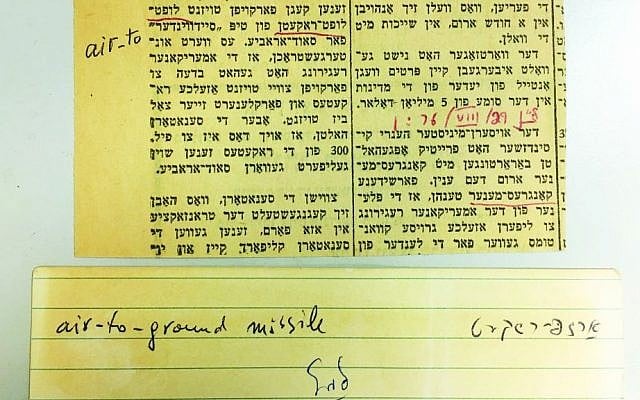 די פריעען, וואָס וועלן זיך אָנהויבן
אין אַ חודש אַרום, אין שייכות מיט
די וואַלן.
דער וואָרטזאָגער האָט נישט גע־
וואָלט איבערגעבן קיין פּרטים וועגן
אָנטייל פון יעדער פון די מדינות
אין דער סומע פון 5 מיליאָן דאָלאַר.
29/VIII 76 : 1
דער אויסערן־מיניסטער הענרי קי־
סינדזשער האָט פרייטיק אָפּגעהאַל־
טן באַראַטונגען מיט קאָנגרעס־מע־
נער אַרום דעם ענין. פאַרשידענע
קאָנגרעס־מענער טענהן, אַז די פּלע־
נער פון דער אַמעריקאַנער רעגירונג
צו ליפערן אַזעלכע גרויסע קוואַנ־
טומס געווער פאַר די לענדער פון
זענען קעגן פאַרקויפן טויזנט לופט־
לופט־ראַקעטן פון טיפּ „סיידווינדער”
פאַר סאַוד־אַראַביע. עס ווערט אונ־
טערגעשטראָכן, אַז די אַמעריקאַנער
רעגירונג האָט געהאַט בדעה צו
פאַרקויפן צוויי טויזנט אַזעלכע ראַ־
קעטעס און פאַרקלענערט זייער צאָל
ביז טויזנט, אָבער די סענאַטאָרן
האַלטן, אַז אויך דאָס איז צו פיל.
300 פון די ראַקעטעס זענען שוין
געליפערט געוואָרן סאַוד־אַראַביע.
צווישן די סענאַטאָרן, וואָס האָבן
זיך קעגנגעשטעלט דער טראַנזאַקציע
אין אַזאַ פאָרם, זענען געווען די
סענאַטאָרן קליפאָרד קייז און
air-to
air-to-ground missile